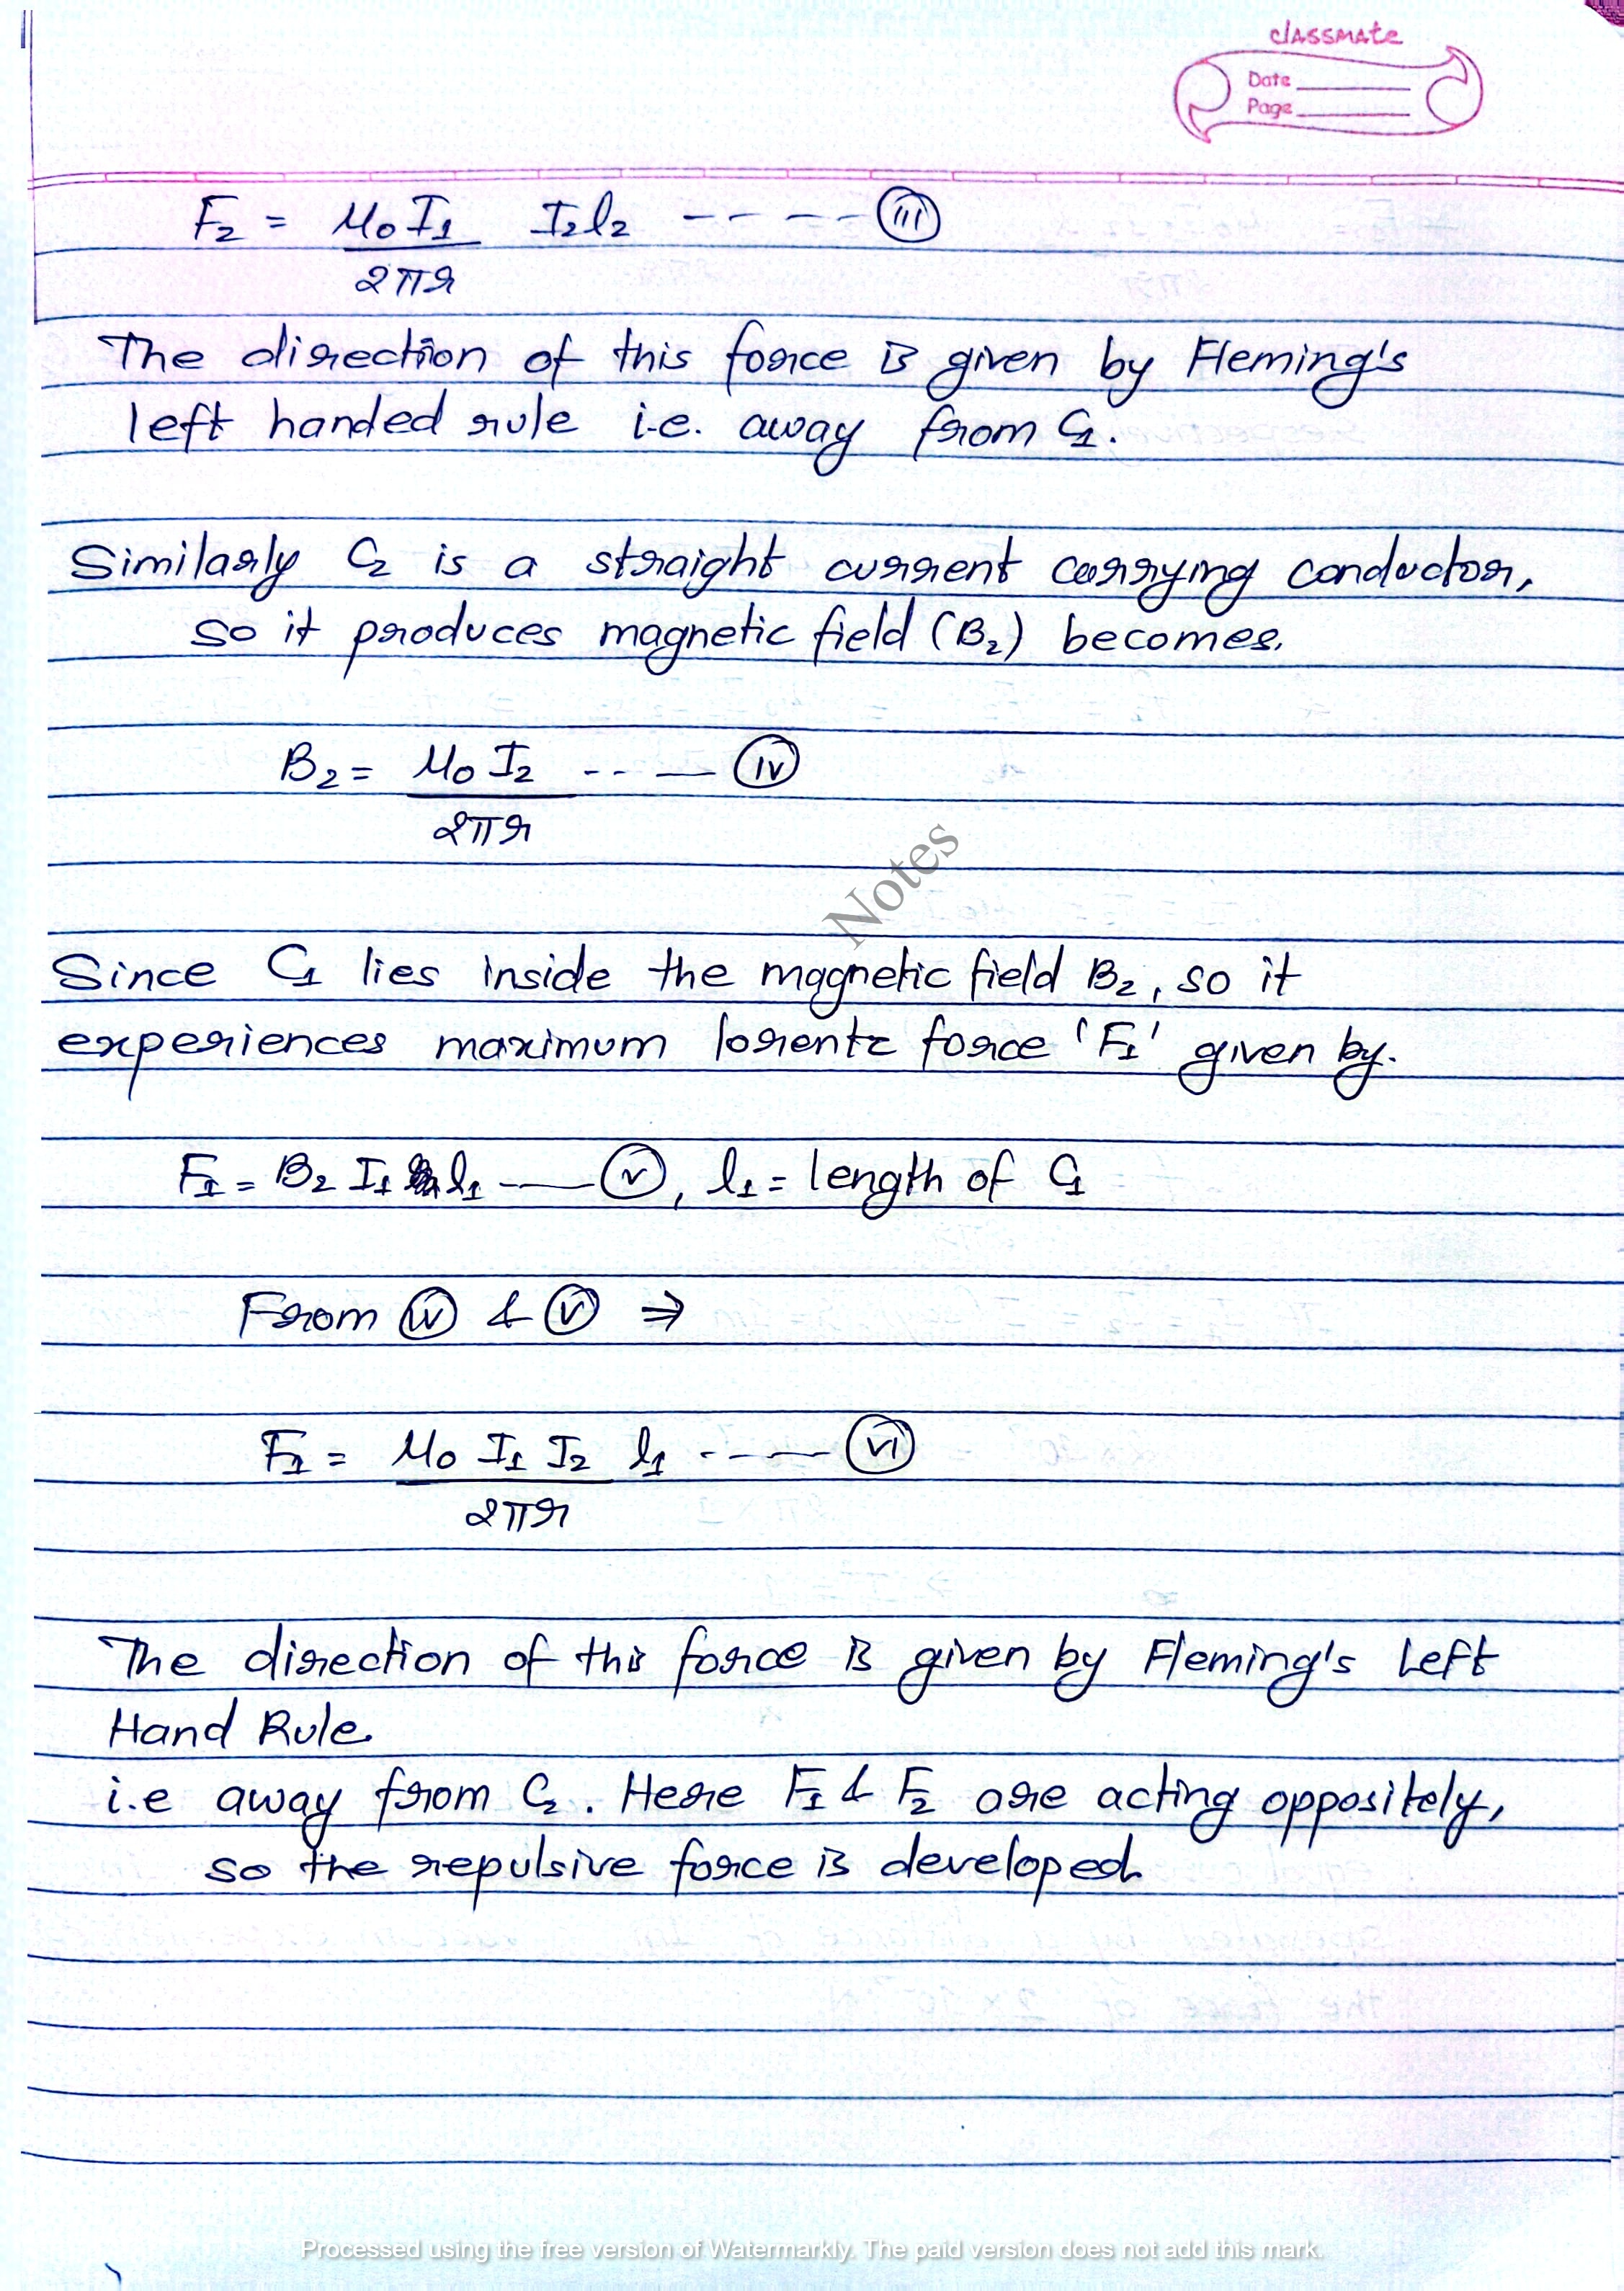 classmate
Date
Page
F₂ = μ₀I₁/2πr I₂l₂ ----- (iii)
The direction of this force is given by Fleming's
left handed rule i.e. away from C₁.
Similarly C₂ is a straight current carrying conductor,
so it produces magnetic field (B₂) becomes.
B₂ = μ₀I₂/2πr ---- (iv)
Notes
Since C₁ lies inside the magnetic field B₂, so it
experiences maximum lorentz force 'F₁' given by.
F₁ = B₂ I₁ l₁ —— (v), l₁ = length of C₁
From (iv) & (v) ⇒
F₁ = μ₀ I₁ I₂/2πr l₁ ----- (vi)
The direction of this force is given by Fleming's Left
Hand Rule.
i.e away from C₂. Here F₁ & F₂ are acting oppositely,
so the repulsive force is developed.
Processed using the free version of Watermarkly. The paid version does not add this mark.